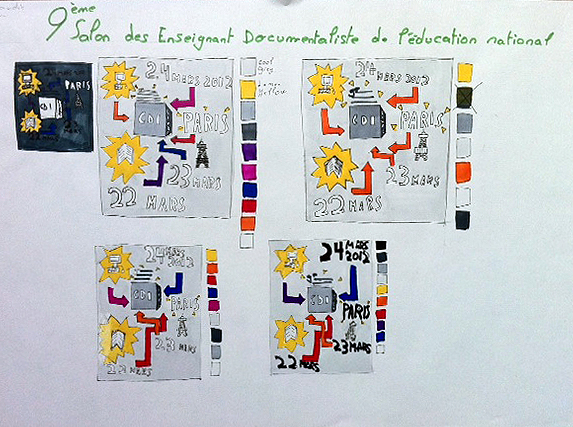 9ème
Salon des Enseignant Documentaliste de l'éducation national
PARIS
CDI
24 MARS 2012
CDI
PARIS
23 MARS
22 MARS
24 MARS 2012
CDI
PARIS
23 MARS
22 MARS
24 MARS
2012
CDI
PARIS
23 MARS
22 MARS
24 MARS
2012
CDI
PARIS
23 MARS
22 MARS